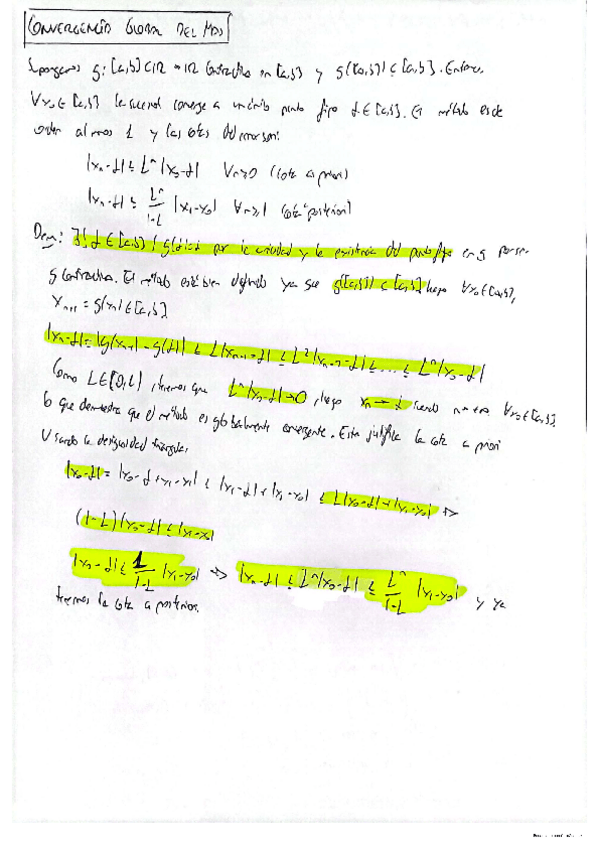 CONVERGENCIA GLOBAL DEL MAS
Supongamos g: [a,b] ⊂ ℝ → ℝ contractiva en [a,b] y g([a,b]) ⊂ [a,b]. Entonces,
∀x₀ ∈ [a,b] la sucesión converge a un único punto fijo α ∈ [a,b]. El método es de
orden al menos 1 y las cotas del error son:
|xₙ-α| ≤ Lⁿ|x₀-α| ∀n≥0 (cota a priori)
|xₙ-α| ≤ Lⁿ/(1-L) |x₁-x₀| ∀n≥1 (cota "posteriori")
Dem: ∃! α ∈ [a,b] / g(α)=α por la unicidad y la existencia del punto fijo en g por ser
g contractiva. El método está bien definido ya que g([a,b]) ⊂ [a,b] luego ∀x₀ ∈ [a,b],
xₙ₊₁ = g(xₙ) ∈ [a,b]
|xₙ-α| = |g(xₙ₋₁) - g(α)| ≤ L|xₙ₋₁-α| ≤ L²|xₙ₋₂-α| ≤ ... ≤ Lⁿ|x₀-α|
Como L∈[0,1), tenemos que Lⁿ|x₀-α|→0, luego xₙ → α cuando n→+∞, ∀x₀∈[a,b],
lo que demuestra que el método es globalmente convergente. Esto justifica la cota a priori
Usando la desigualdad triangular,
|x₀-α| = |x₀-α+x₁-x₁| ≤ |x₁-α|+|x₁-x₀| ≤ L|x₀-α|+|x₁-x₀| ⇒
(1-L)|x₀-α| ≤ |x₁-x₀|
|x₀-α| ≤ 1/(1-L) |x₁-x₀| ⇒ |xₙ-α| ≤ Lⁿ|x₀-α| ≤ Lⁿ/(1-L) |x₁-x₀| y ya
tenemos la cota a posteriori.